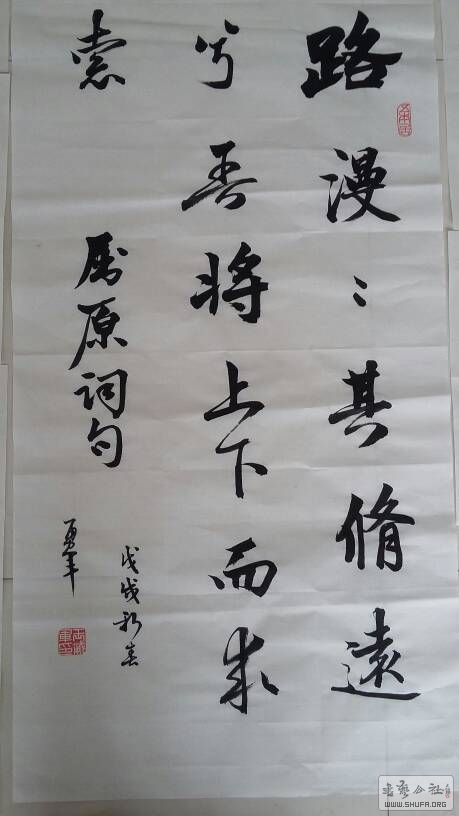 路漫:其脩遠
兮吾将上下而求
索
屈原词句
戊戌新春
WWW.SHUFA.ORG